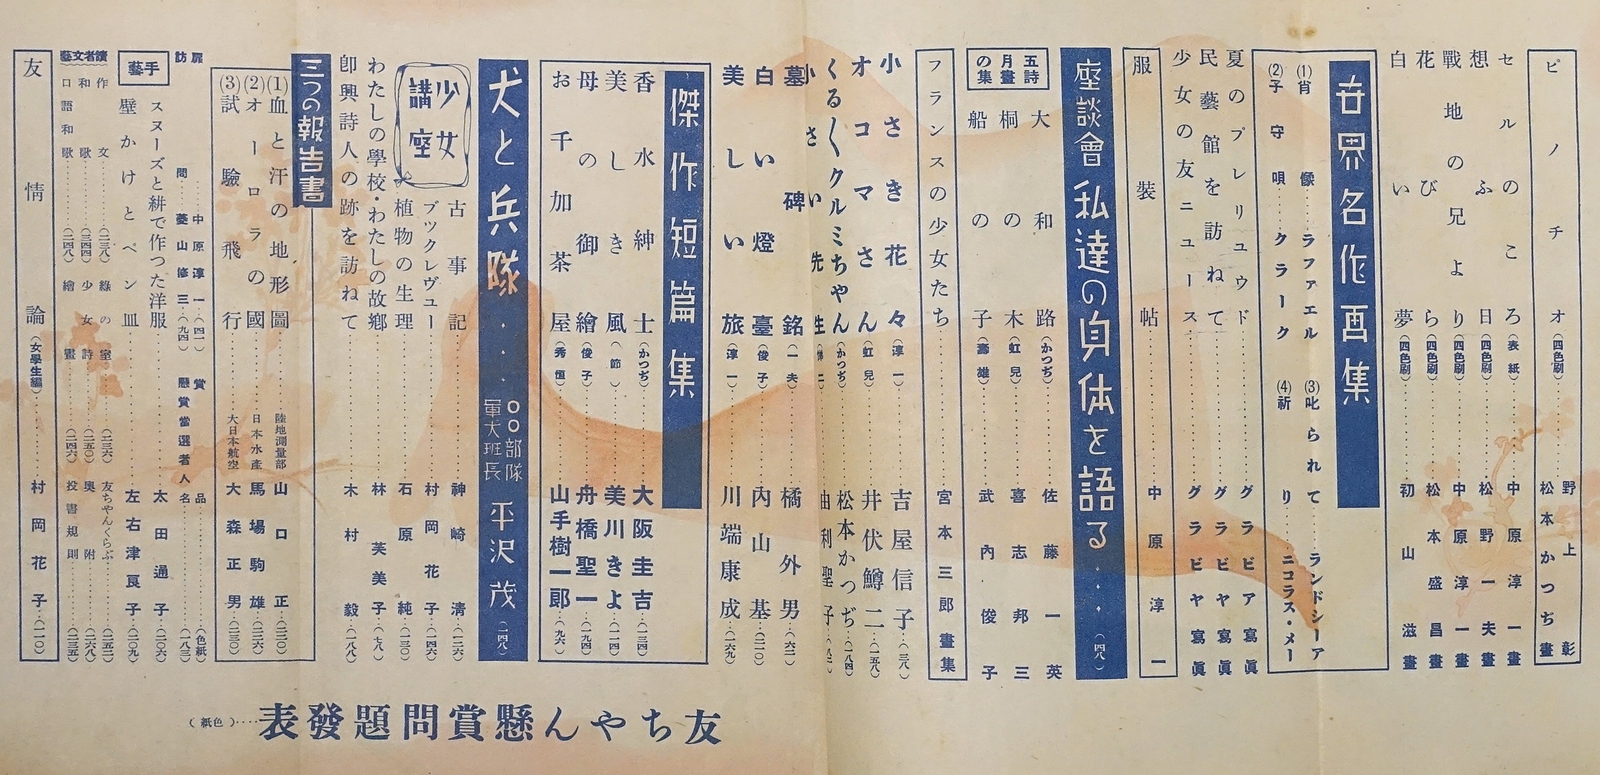 ピノチオ(四色刷)……野上彰 松本かつぢ畫
セルのころ(表紙)……中原淳一畫
想ふ日(四色刷)……松野一夫畫
戰地の兄より(四色刷)……中原淳一畫
花びら(四色刷)……松本盛昌畫
白い夢(四色刷)……初山滋畫
世界名作画集
(1)肖像……ラファエル
(3)叱られて……ランドシーア
(2)子守唄……クラーク
(4)祈り……ニコラス・メー
夏のプレリュウド……グラビア寫眞
民藝館を訪ねて……グラビヤ寫眞
少女の友ニュース……グラビヤ寫眞
服裝帖……中原淳一
座談會 私達の身体を語る……(四八)
五月の詩畫集
大和路(かつぢ)……佐藤一英
桐の木(虹兒)……喜志邦三
船の子(壽雄)……武内俊子
フランスの少女たち……宮本三郎畫集
小さき花々(淳一)……吉屋信子(三八)
オコマさん(虹兒)……井伏鱒二(一五八)
くるくるクルミちやん(かつぢ)……松本かつぢ(一八四)
小さい先生……由利聖子
墓碑銘(一夫)……橘外男(六二)
白い燈臺(俊子)……內山基(二一〇)
美しい旅(淳一)……川端康成(一六九)
傑作短篇集
香水紳士(かつぢ)……大阪圭吉(一三四)
美しき風(節)……美川きよ(一一四)
母の御繪(俊子)……舟橋聖一(一九四)
お千加茶屋(秀恒)……山手樹一郎(九六)
犬と兵隊……〇〇部隊軍犬班長 平沢茂(一四八)
少女講座
古事記……神崎淸(一二六)
ブックレヴュー……村岡花子(一四六)
植物の生理……石原純(一三〇)
わたしの學校・わたしの故鄉……林芙美子(七八)
卽興詩人の跡を訪ねて……木村毅(一八八)
三つの報告書
(1)血と汗の地形圖……陸地測量部 山口正(二二〇)
(2)オーロラの國……日本水產 馬場駒雄(二二六)
(3)試驗飛行……大日本航空 大森正男(二三〇)
扉……中原淳一(四一)
訪問……菱山修三(九四)
賞品……(色紙)
懸賞當選者人名……(一八三)
手藝
スヌーズと絣で作つた洋服……太田通子(二〇六)
壁かけとペン皿……左右津艮子(二〇九)
讀者文藝
作文……(二三八)
和歌……(二四四)
口語和歌……(二四八)
綠の室……(二三六)
少女詩……(二五〇)
繪畫……(二四六)
友ちやんくらぶ……(二五二)
奧附……(二六八)
投書規則……(二三五)
友情論(女學生編)……村岡花子(一一〇)
友ちやん懸賞問題發表……(色紙)